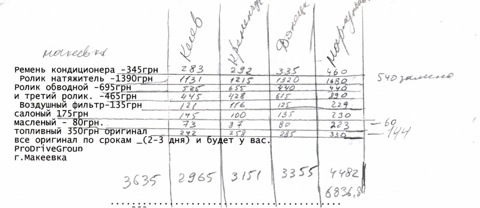 макеевка Киев Кременчуг Донецк
Ремень кондиционера -345грн 283 292 335 460
Ролик натяжитель -1390грн 1131 1215 1320 1680 540 замена
Ролик обводной -695грн 655 440 440
и третий ролик. -465грн 445 428 615
Воздушный фильтр-135грн 121 116 125 229
салоный 175грн 145 100 135 230
масленый - 80грн. 73 37 80 223 — 60
топливный 350грн оригинал 242 258 285 330 — 144
все оригинал по срокам _(2-3 дня) и будет у вас.
ProDriveGroup
г.Макеевка
3635 2965 3151 3355 4482
6836,8